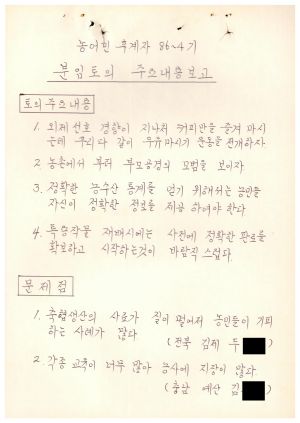 농어민 후계자 86-4기
분임토의 주요내용보고
토의주요내용
1. 외제선호 경향이 지나쳐 커피만을 즐겨 마시
는데 우리 다 같이 우유마시기 운동을 전개하자
2. 농촌에서 부터 부모공경의 모범을 보이자
3. 정확한 농수산 통계를 얻기 위해서는 농민들
자신이 정확한 정보를 제공 하여야 한다
4. 특용작물 재배시에는 사전에 정확한 판로를
확보하고 시작하는것이 바람직 스럽다.
문제점
1. 축협생산의 사료가 질이 떨어져 농민들이 기피
하는 사례가 많다
(전북 김제 두
)
2. 각종 교육이 너무 많아 농사에 지장이 많다
(충남 예산 김
)